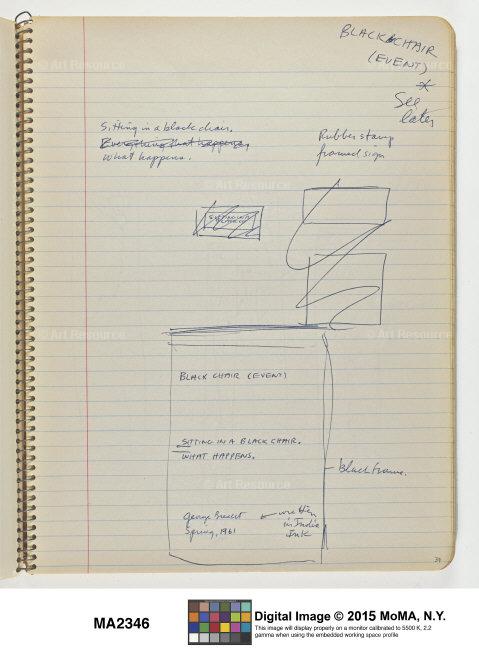 BLACK CHAIR
(EVENT)
*
See
later
Sitting in a black chair.
Everything that happens,
What happens.
Rubber stamp
framed sign
BLACK CHAIR (EVENT)
SITTING IN A BLACK CHAIR.
WHAT HAPPENS.
black frame.
George Brecht ← written
Spring, 1961 in India
Ink
39
© Art Resource
© Art Resource
© Art Resource
© Art Resource
© Art Resource
© Art Resource
MA2346
Digital Image © 2015 MoMA, N.Y.
This image will display properly on a monitor calibrated to 5500 K, 2.2
gamma when using the embedded working space profile